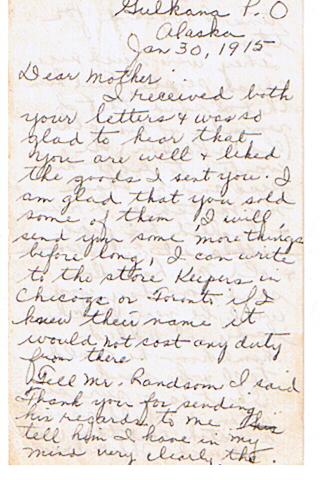 Gulkana P. O
Alaska
Jan 30, 1915
Dear Mother
I received both
your letters & was so
glad to hear that
you are well & liked
the goods I sent you. I
am glad that you sold
some of them, I will
send you some more things
before long, I can write
to the store Keepers in
Chicogo or Toronto if I
knew their name it
would not cost any duty
from there
Tell Mr. Randsom I said
Thank you for sending
his regards to me
tell him I have in my
mind very clearly the